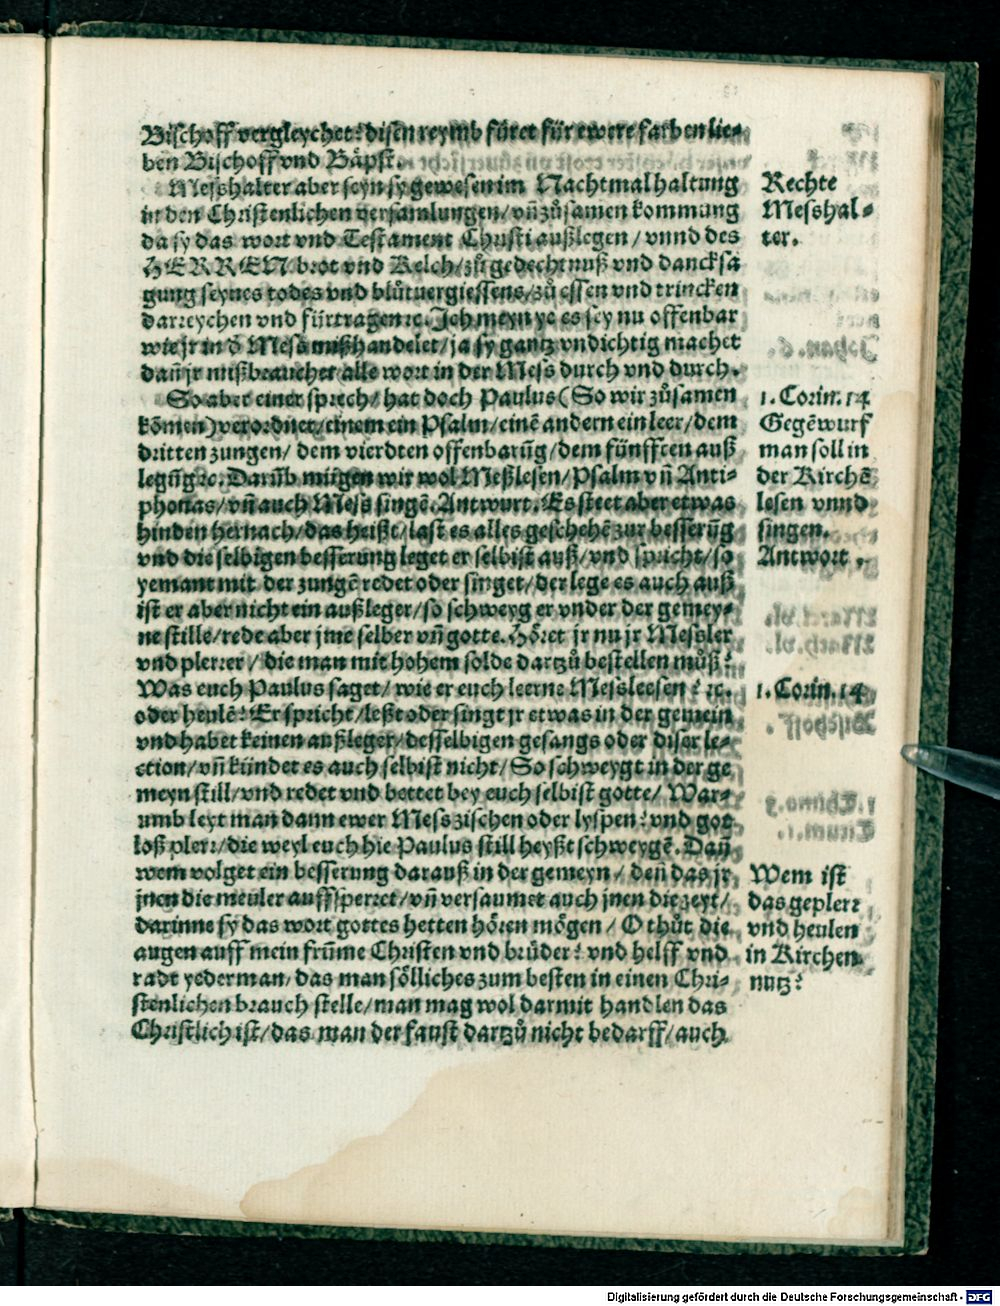 Bischoff vergleychet? disen reymb füret für ewere farben lie-
ben Bischoff vnd Bäpst.
Messhalter aber seyn sy gewesen im Nachtmal haltung
in den Christenlichen versamlungen/ vñ zůsamen kommung
da sy das wort vnd Testament Christi außlegen / vnnd des
HERREN brot vnd Kelch/ zů gedechtnuß vnd dancksa
gung seynes todes vnd blůtuergiessens/ zů essen vnd trincken
darreychen vnd fürtragen ⁊c. Ich meyn ye es sey nu offenbar
wie jr in d̄ Mess mißhandelet/ ja sy gantz vndichtig machet
dañ jr mißbrauchet alle wort in der Mess durch vnd durch.
So aber einer sprech/ hat doch Paulus (So wir zůsamen
kõmen) verordnet/ einem ein Psalm/ einẽ andern ein leer/ dem
dritten zungen/ dem vierdten offenbarũg/ dem fünfften auß
legũg ⁊c. Darũb mügen wir wol Meßlesen/ Psalm vñ Anti-
phonas/ vñ auch Mess singẽ. Antwurt. Es steet aber etwas
hinden hernach/ das heißt/ last es alles geschehẽ zur besserũg
vnd die selbigen besserung leget er selbist auß/ vnd spricht/ so
yemant mit der zungẽ redet oder singet/ der lege es auch auß
ist er aber nicht ein außleger/ so schweyg er vnder der gemey-
ne stille/ rede aber jme selber vñ gotte. Höret jr nu jr Messler
vnd plerrer / die man mit hohem solde dartzů bestellen můß?
Was euch Paulus saget/ wie er euch leerne Messleesen? ⁊c.
oder heulẽ? Er spricht/ leßt oder singt jr etwas in der gemein
vnd habet keinen außleger/ desselbigen gesangs oder diser le-
ction/ vñ kündet es auch selbist nicht/ So schweygt in der ge
meyn still/ vnd redet vnd bettet bey euch selbist gotte/ War-
umb leyt man dann ewer Mess zischen oder lyspen? vnd got
loß plerr/ die weyl euch hie Paulus still heyßt schweygẽ. Dañ
wem volget ein besserung darauß in der gemeyn / deñ das jr
jnen die meuler auffsperret/ vñ versaumet auch jnen die zeyt/
darinne sy das wort gottes hetten hören mögen / O thůt die
augen auff mein frũme Christen vnd brüder? vnd helff vnd
radt yederman/ das man sölliches zum besten in einen Chri-
stenlichen brauch stelle/ man mag wol darmit handlen das
Christlich ist/ das man der faust dartzů nicht bedarff/ auch
Rechte
Messhal-
ter.
1. Corin. 14
Gegẽwurf
man soll in
der Kirchẽ
lesen vnnd
singen.
Antwort.
1. Corin. 14
Wem ist
das geplerr
vnd heulen
in Kirchen
nutz?
Digitalisierung gefördert durch die Deutsche Forschungsgemeinschaft - DFG